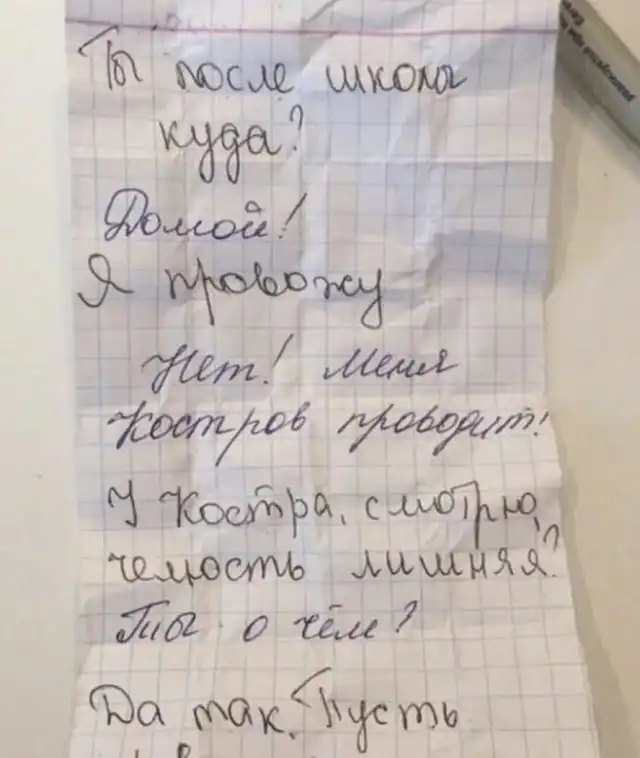 Ты после школы
куда?
Домой!
Я провожу
Нет! Меня
Костров проводит!
У Костра, смотрю,
челюсть лишняя?
Ты о чём?
Да так. Пусть